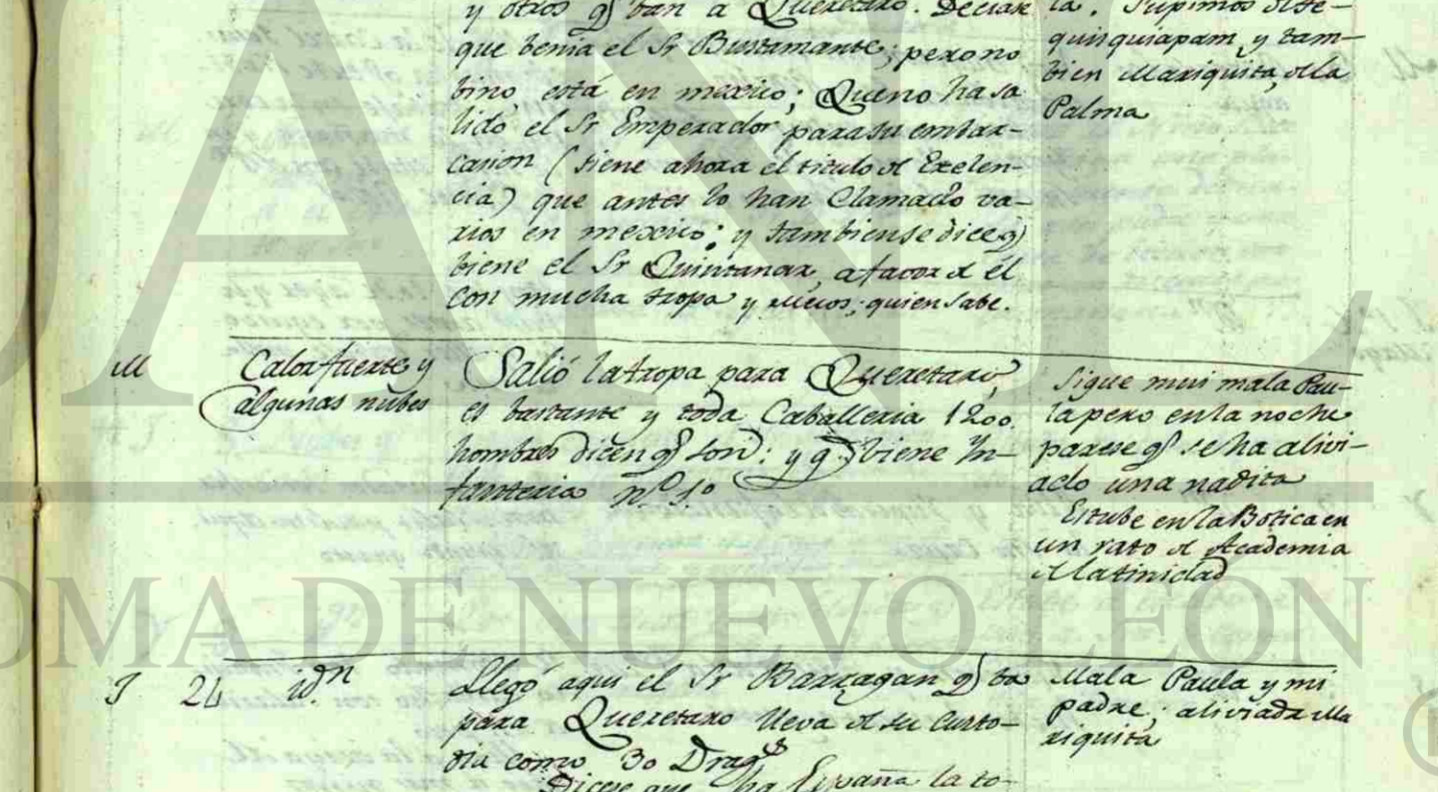 y otros q̃ ban a Queretaro. Decian
que benia el Sr Bustamante; pero no
bino, está en mexico; Que no ha sa
lido el Sr Emperador para su embar-
cacion (tiene ahora el titulo d Exelen-
cia) que antes lo han Clamado va-
rios en mexico: y tambien se dice q̃
biene el Sr Quintanar, a favor d él
con mucha tropa y; quien sabe.
la. Supimos d Te-
quisquiapam, y tam-
bien Mariquita, d la
Palma
M
Calor fuerte y
algunas nubes
Salió la tropa para Queretaro,
es bastante y toda Caballeria 1200.
hombres dicen q̃ son: y q̃ biene In-
fanteria nº 1º
Sigue mui mala Pau-
la pero en la noche
parese q̃ se ha alivi-
ado una nadita
Estube en la Botica en
un rato d Academia
d latinidad
J 24 idn
Llegó aqui el Sr Barragan q̃ ba
para Queretaro lleva d su custo-
dia como 30 Drags
Dicese que España la to-
Mala Paula y mi
padre; aliviada Ma
riquita
UANL
OMA DE NUEVO LEON